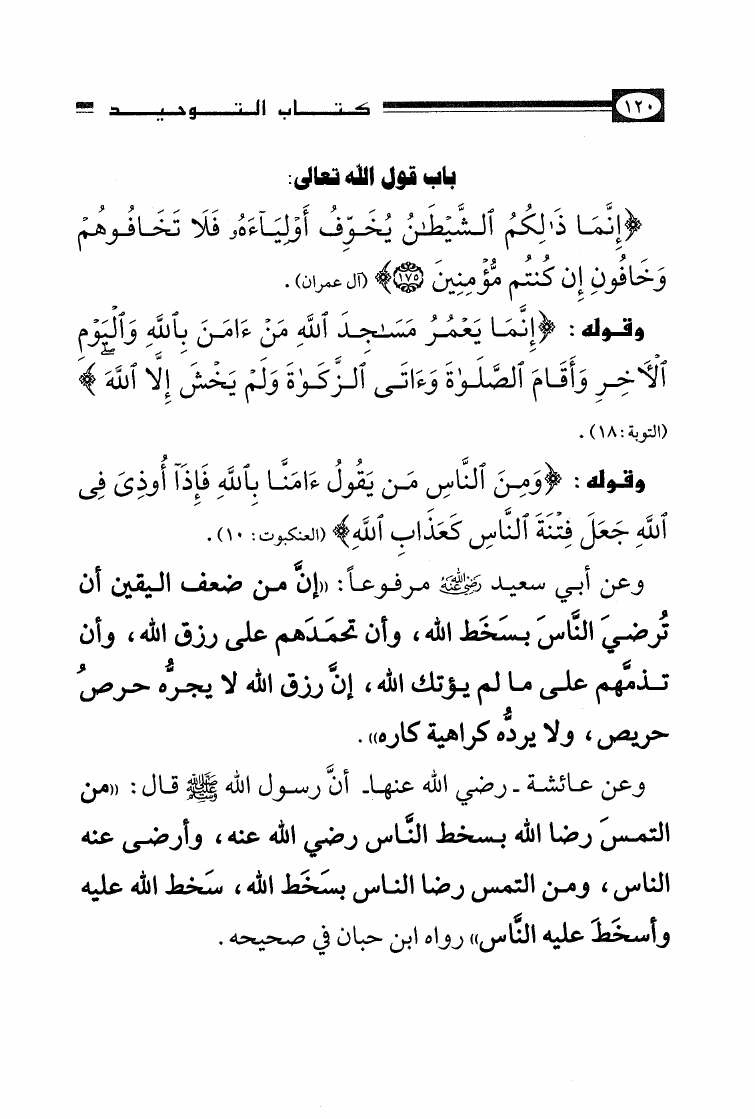 ١٢٠ كتاب التوحيد
باب قول الله تعالى:
﴿إِنَّمَا ذَٰلِكُمُ ٱلشَّيْطَٰنُ يُخَوِّفُ أَوْلِيَآءَهُۥ فَلَا تَخَافُوهُمْ
وَخَافُونِ إِن كُنتُم مُّؤْمِنِينَ ١٧٥﴾ (آل عمران).
وقوله: ﴿إِنَّمَا يَعْمُرُ مَسَٰجِدَ ٱللَّهِ مَنْ ءَامَنَ بِٱللَّهِ وَٱلْيَوْمِ
ٱلْأَخِرِ وَأَقَامَ ٱلصَّلَوٰةَ وَءَاتَى ٱلزَّكَوٰةَ وَلَمْ يَخْشَ إِلَّا ٱللَّهَ ۖ﴾
(التوبة: ١٨).
وقوله: ﴿وَمِنَ ٱلنَّاسِ مَن يَقُولُ ءَامَنَّا بِٱللَّهِ فَإِذَآ أُوذِىَ فِى
ٱللَّهِ جَعَلَ فِتْنَةَ ٱلنَّاسِ كَعَذَابِ ٱللَّهِ﴾ (العنكبوت: ١٠).
وعن أبي سعيد رضي الله عنه مرفوعاً: «إنَّ من ضعف اليقين أن
تُرضيَ النَّاسَ بسَخَط الله، وأن تحمَدَهم على رزق الله، وأن
تذمَّهم على ما لم يؤتك الله، إنَّ رزق الله لا يجرُّه حرصُ
حريص، ولا يردُّه كراهية كاره».
وعن عائشة ـ رضي الله عنها ـ أنَّ رسول الله ﷺ قال: «من
التمسَ رضا الله بسخط النَّاس رضي الله عنه، وأرضى عنه
الناس، ومن التمس رضا الناس بسَخَط الله، سَخط الله عليه
وأسخَطَ عليه النَّاس» رواه ابن حبان في صحيحه.